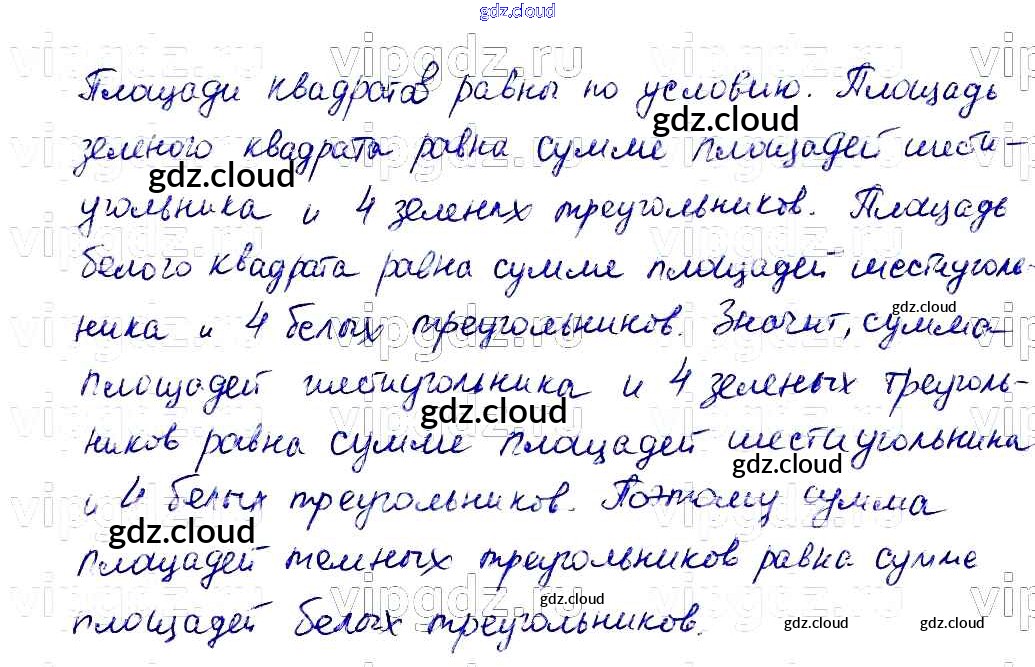 gdz.cloud
Площади квадратов равны по условию. Площадь
зеленого квадрата равна сумме площадей шести-
угольника и 4 зеленых треугольников. Площадь
белого квадрата равна сумме площадей шестиуголь-
ника и 4 белых треугольников. Значит, сумма
площадей шестиугольника и 4 зеленых треуголь-
ников равна сумме площадей шестиугольника
и 4 белых треугольников. Поэтому сумма
площадей темных треугольников равна сумме
площадей белых треугольников.